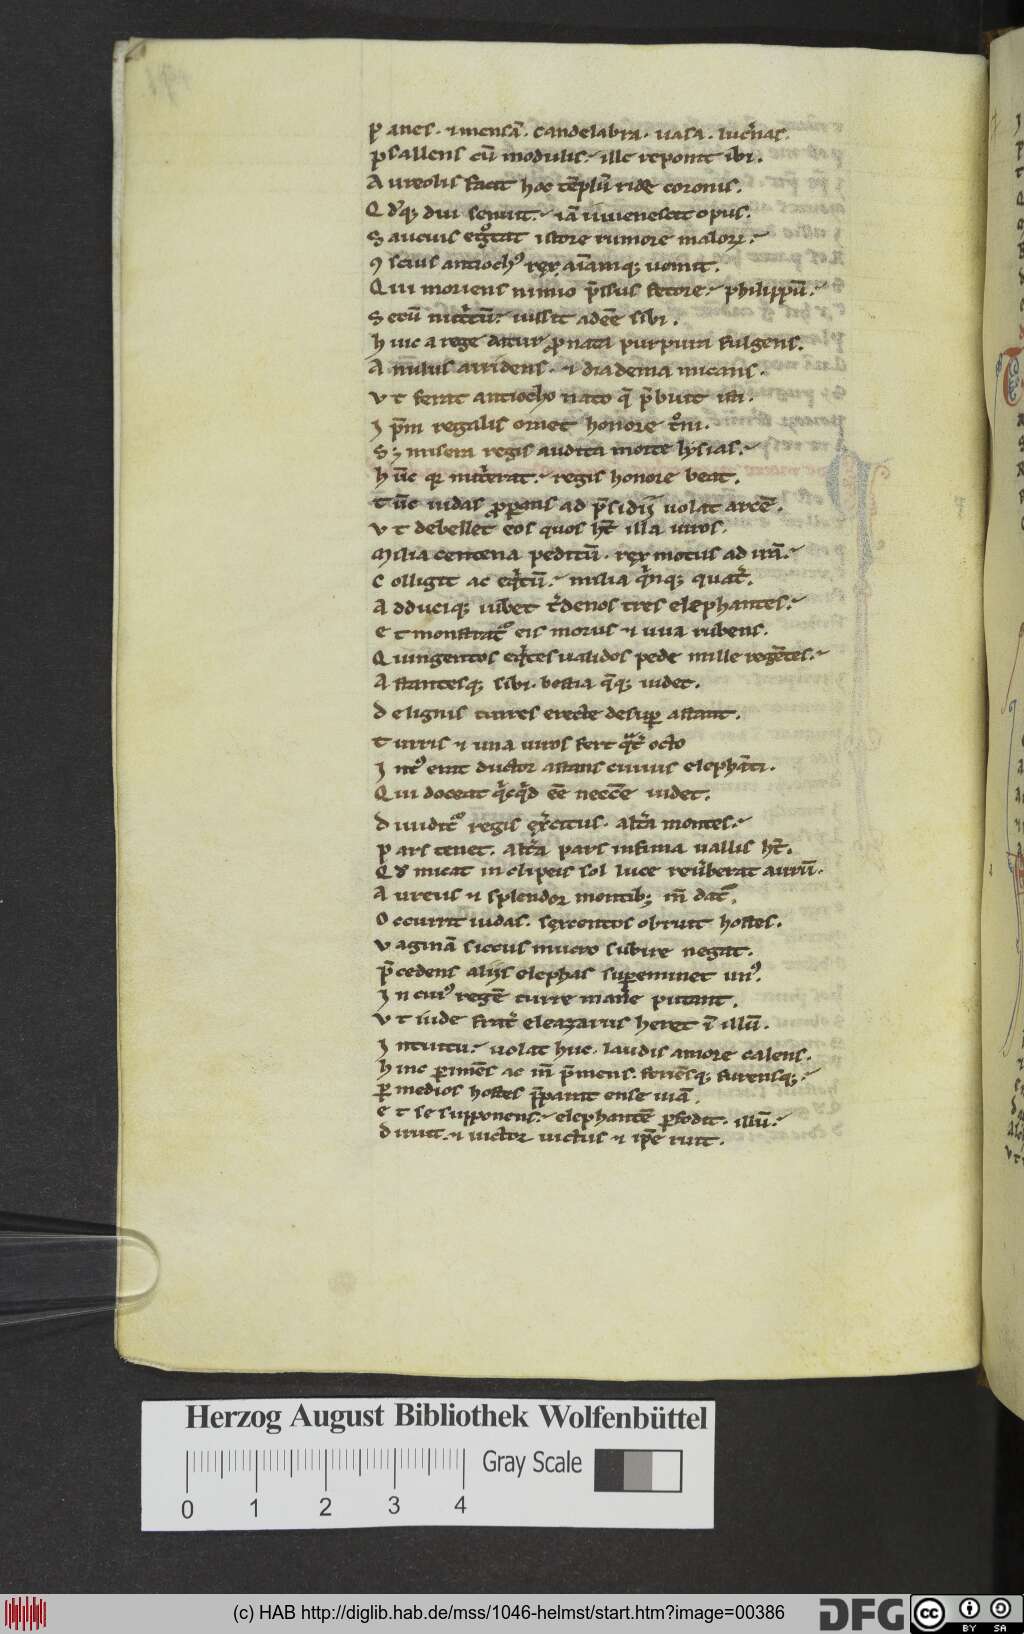 P anes · ⁊ mensā · candelabra · uasa · luc̄nas.
P sallens cū modulis ⁊ ille reponit ibi.
A ureolis facit hoc tēplū ride coronis.
Q d'q; diu senuit · iā iuuenescit opus.
S aucius egͦtat istore rumore malor.
ꝯ scius antiochꝰ rex aīamq; uomit.
Q ui moriens nimio p̄ssus fetore · philippū
S ecū nutͥtū · iussit adeē sibi.
h uic a rege datur ꝓ nata purpura fulgens.
A nulus arridens · ⁊ diadema micans.
V t ferat antiocho nato q̄ p̄buit
I p̄m regalis ornet honore tͦni.
S ; misera regis audita morte lysias
h ūc qr nutͥerat · regis honore beat.
t ūc iudas ꝓꝑans ad p̄sidij uolat arcē.
V t debellet eos quos ht̄ illa uiros.
M ilia centena peditū · rex motus ad irā
C olligit ac eqͥtū · milia qͥnq; quatͥ.
A dduciq; iubet tͥdenos tres elephantes
E t monstratͥ eis morus ⁊ uua rubens.
Q uingentos eqͥtes ualidos pede mille regētes
A stantesq; sibi · bestia q̄q; uidet.
D e lignis turres erecte desuꝑ astant.
T urris ⁊ una uiros fert qͣtͥ octo
I ntͥ erat ductor astans cuiuis elephāti.
Q ui doceat qͥcqͥd eē neccē uidet.
D iuiditͥ regis exͥcitus · altͥa montes
P ars tenet · altͥa pars infima uallis ht̄.
Q d micat in clipeis sol luce reūberat aurū.
A ureus ⁊ splendor montib; īn dat̄.
O ccurrit iudas · sexcentos obruit hostes.
V aginā siccus mucro subire negat.
P̄ cedens aliis elephas suꝑeminet unꝰ.
I n cuiꝰ regē turre manͥe putant.
V t iude fratͥ eleazarus heret ī illū.
I ntuitu · uolat huc · laudis amore calens.
h inc ꝑimēs ac īn p̄mens · feriēsq; furensq;
ꝑ medios hostes p̄parat ense uiā.
E t se supponens · elephantē ꝑfodit · illū
D iruit · ⁊ uictor uictus ⁊ ip̄e ruit.
Herzog August Bibliothek Wolfenbüttel
Gray Scale
0 1 2 3 4
(c) HAB http://diglib.hab.de/mss/1046-helmst/start.htm?image=00386
DFG
cc BY SA